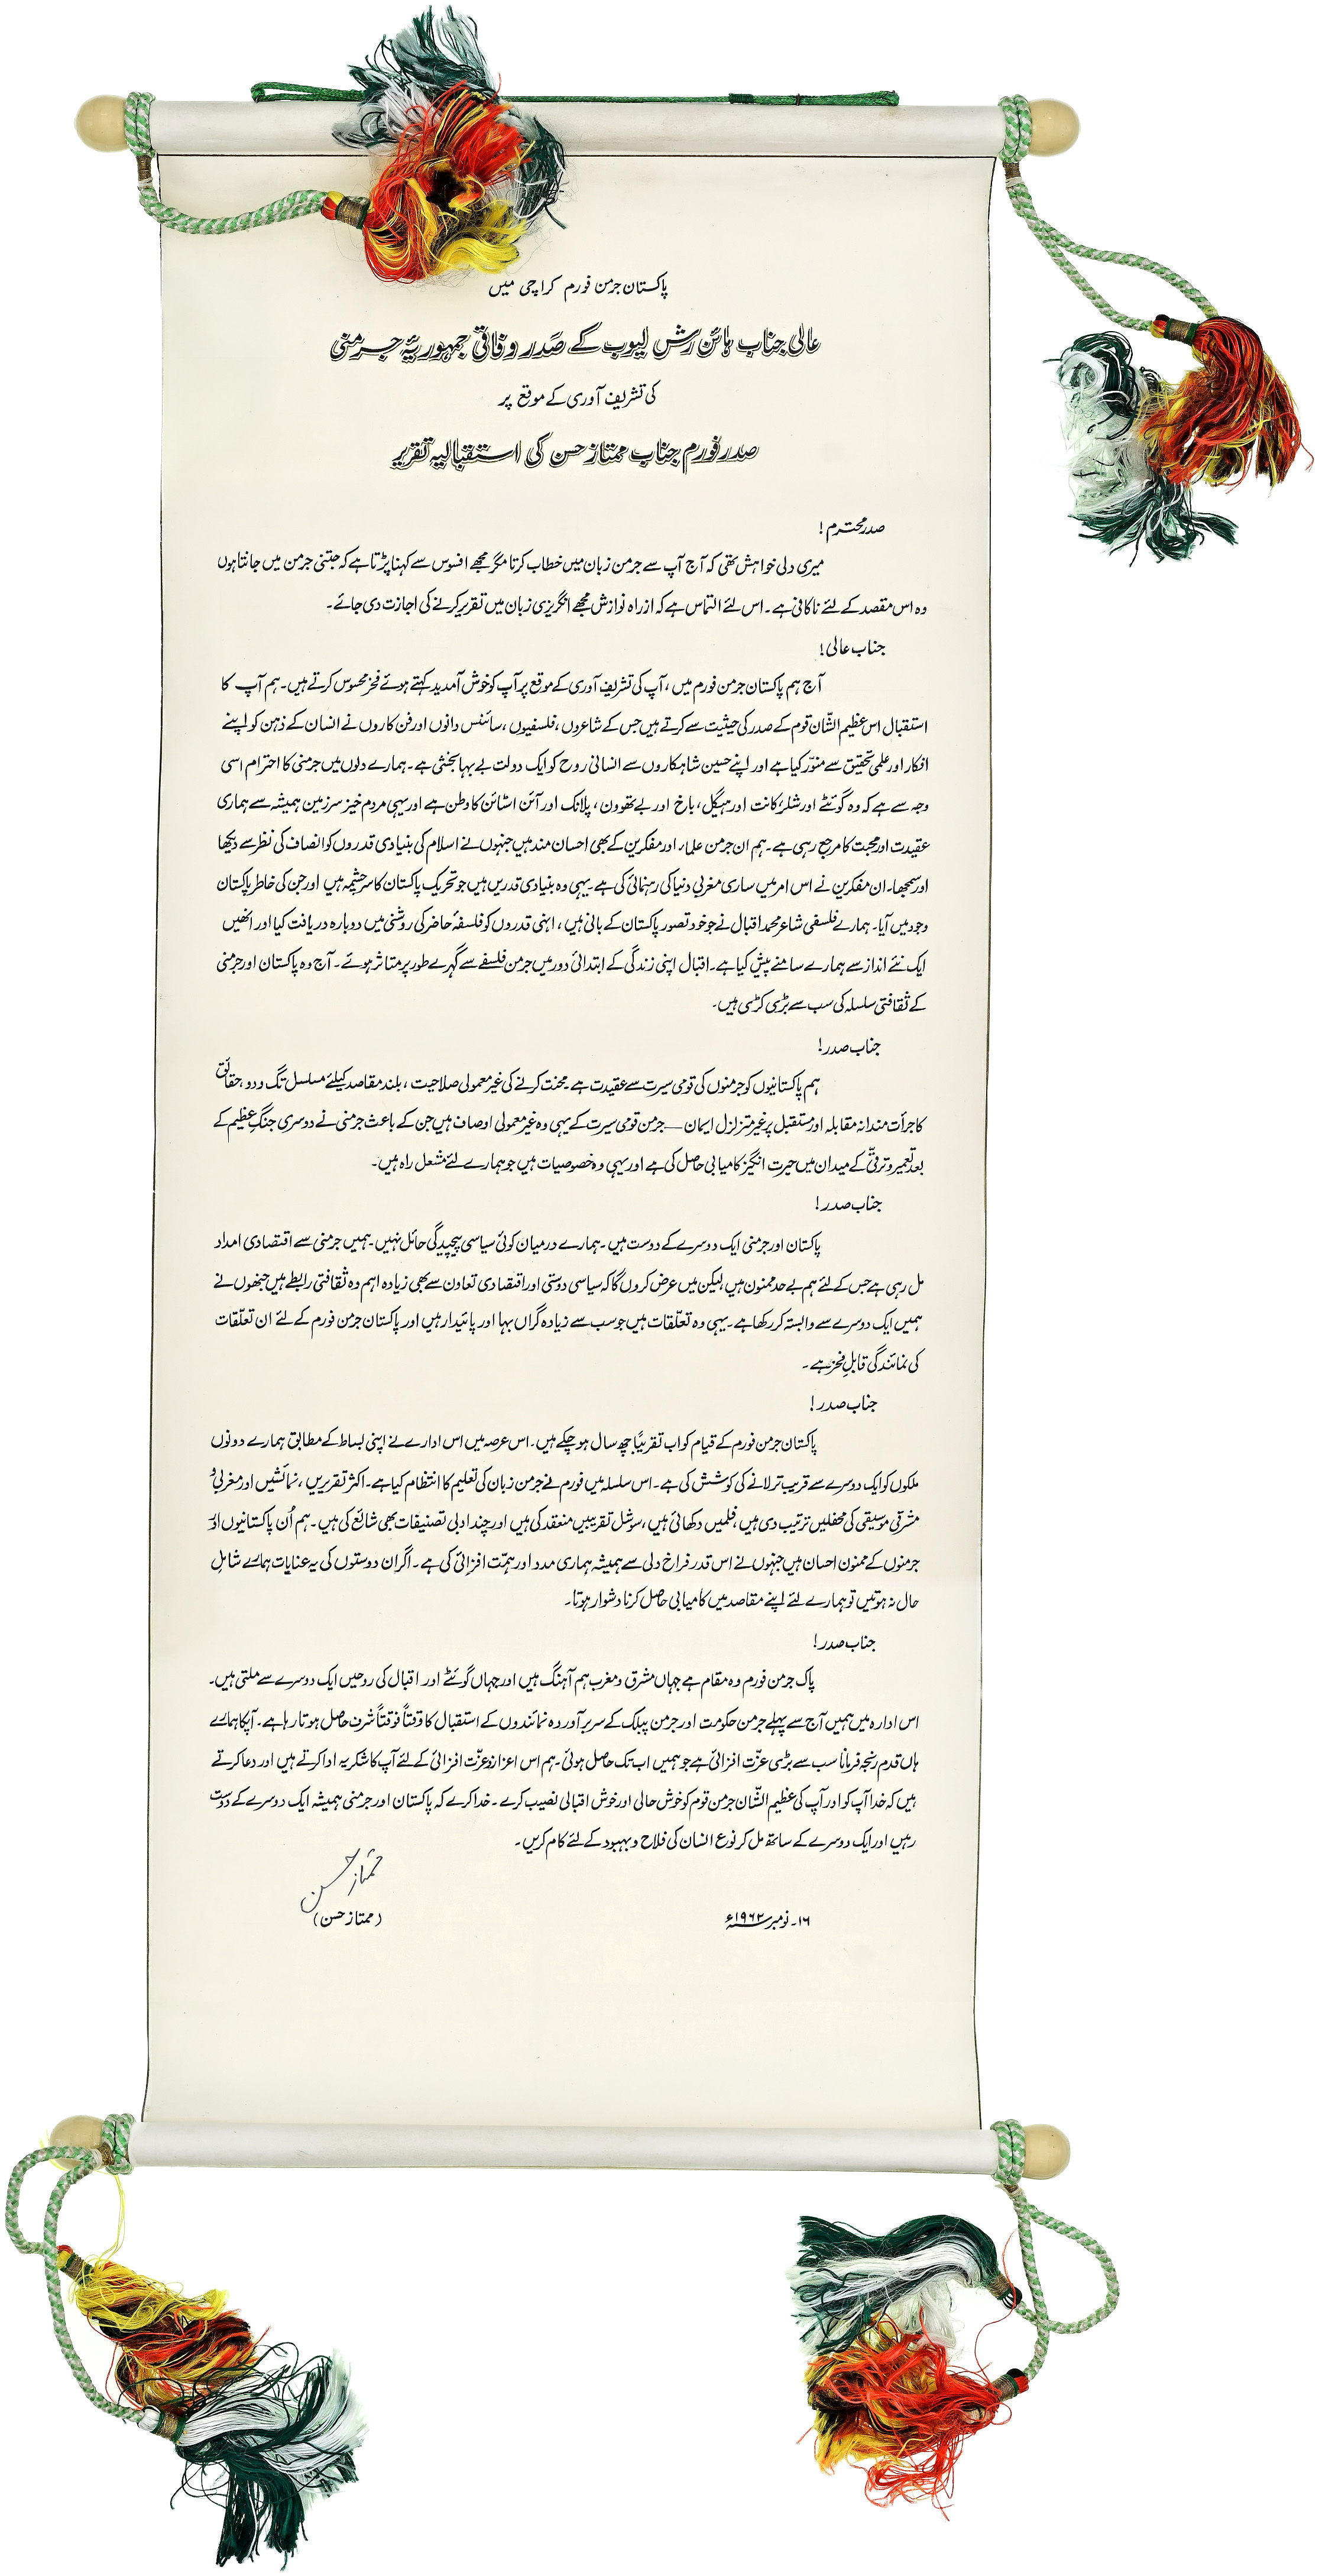 پاکستان جرمن فورم کراچی میں
عالی جناب ہائن رش لیوب کے صدر وفاقی جمہوریۂ جرمنی
کی تشریف آوری کے موقع پر
صدر فورم جناب ممتاز حسن کی استقبالیہ تقریر
صدر محترم!
میری دلی خواہش تھی کہ آج آپ سے جرمن زبان میں خطاب کرتا مگر مجھے افسوس سے کہنا پڑتا ہے کہ جتنی جرمن میں جانتا ہوں
وہ اس مقصد کے لئے ناکافی ہے۔ اس لئے التماس ہے کہ ازراہ نوازش مجھے انگریزی زبان میں تقریر کرنے کی اجازت دی جائے۔
جناب عالی!
آج ہم پاکستان جرمن فورم میں، آپ کی تشریف آوری کے موقع پر آپ کو خوش آمدید کہتے ہوئے فخر محسوس کرتے ہیں۔ ہم آپ کا
استقبال اس عظیم الشّان قوم کے صدر کی حیثیت سے کرتے ہیں جس کے شاعروں، فلسفیوں، سائنس دانوں اور فن کاروں نے انسان کے ذہن کو اپنے
افکار اور علمی تحقیق سے منوّر کیا ہے اور اپنے حسین شاہکاروں سے انسانی روح کو ایک دولت بے بہا بخشی ہے۔ ہمارے دلوں میں جرمنی کا احترام اسی
وجہ سے ہے کہ وہ گوئٹے اور شلر، کانٹ اور ہیگل، باخ اور بے تھوون، پلانک اور آئن اسٹائن کا وطن ہے اور یہی مردم خیز سرزمین ہمیشہ سے ہماری
عقیدت اور محبت کا مرجع رہی ہے۔ ہم ان جرمن علماء اور مفکرین کے بھی احسان مند ہیں جنہوں نے اسلام کی بنیادی قدروں کو انصاف کی نظر سے دیکھا
اور سمجھا۔ ان مفکرین نے اس امر میں ساری مغربی دنیا کی رہنمائی کی ہے۔ یہی وہ بنیادی قدریں ہیں جو تحریک پاکستان کا سرچشمہ ہیں اور جن کی خاطر پاکستان
وجود میں آیا۔ ہمارے فلسفی شاعر محمد اقبال نے جو خود تصور پاکستان کے بانی ہیں، انہی قدروں کو فلسفۂ حاضر کی روشنی میں دوبارہ دریافت کیا اور انھیں
ایک نئے انداز سے ہمارے سامنے پیش کیا ہے۔ اقبال اپنی زندگی کے ابتدائی دور میں جرمن فلسفے سے گہرے طور پر متاثر ہوئے۔ آج وہ پاکستان اور جرمنی
کے ثقافتی سلسلہ کی سب سے بڑی کڑی ہیں۔
جناب صدر!
ہم پاکستانیوں کو جرمنوں کی قومی سیرت سے عقیدت ہے۔ محنت کرنے کی غیر معمولی صلاحیت، بلند مقاصد کیلئے مسلسل تگ و دو، حقائق
کا جرأت مندانہ مقابلہ اور مستقبل پر غیر متزلزل ایمان — جرمن قومی سیرت کے یہی وہ غیر معمولی اوصاف ہیں جن کے باعث جرمنی نے دوسری جنگ عظیم کے
بعد تعمیر و ترقّی کے میدان میں حیرت انگیز کامیابی حاصل کی ہے اور یہی وہ خصوصیات ہیں جو ہمارے لئے مشعل راہ ہیں۔
جناب صدر!
پاکستان اور جرمنی ایک دوسرے کے دوست ہیں۔ ہمارے درمیان کوئی سیاسی پیچیدگی حائل نہیں۔ ہمیں جرمنی سے اقتصادی امداد
مل رہی ہے جس کے لئے ہم بے حد ممنون ہیں لیکن میں عرض کروں گا کہ سیاسی دوستی اور اقتصادی تعاون سے بھی زیادہ اہم وہ ثقافتی رابطے ہیں جنھوں نے
ہمیں ایک دوسرے سے وابستہ کر رکھا ہے۔ یہی وہ تعلّقات ہیں جو سب سے زیادہ گراں بہا اور پائیدار ہیں اور پاکستان جرمن فورم کے لئے ان تعلّقات
کی نمائندگی قابلِ فخر ہے۔
جناب صدر!
پاکستان جرمن فورم کے قیام کو اب تقریباً چھ سال ہو چکے ہیں۔ اس عرصہ میں اس ادارے نے اپنی بساط کے مطابق ہمارے دونوں
ملکوں کو ایک دوسرے سے قریب تر لانے کی کوشش کی ہے۔ اس سلسلہ میں فورم نے جرمن زبان کی تعلیم کا انتظام کیا ہے۔ اکثر تقریریں، نمائشیں اور مغربی و
مشرقی موسیقی کی محفلیں ترتیب دی ہیں، فلمیں دکھائی ہیں، سوشل تقریبیں منعقد کی ہیں اور چند ادبی تصنیفات بھی شائع کی ہیں۔ ہم اُن پاکستانیوں اور
جرمنوں کے ممنون احسان ہیں جنہوں نے اس قدر فراخ دلی سے ہمیشہ ہماری مدد اور ہمّت افزائی کی ہے۔ اگر ان دوستوں کی یہ عنایات ہمارے شامل
حال نہ ہوتیں تو ہمارے لئے اپنے مقاصد میں کامیابی حاصل کرنا دشوار ہوتا۔
جناب صدر!
پاک جرمن فورم وہ مقام ہے جہاں مشرق و مغرب ہم آہنگ ہیں اور جہاں گوئٹے اور اقبال کی روحیں ایک دوسرے سے ملتی ہیں۔
اس ادارہ میں ہمیں آج سے پہلے جرمن حکومت اور جرمن پبلک کے سربرآوردہ نمائندوں کے استقبال کا وقتاً فوقتاً شرف حاصل ہوتا رہا ہے۔ آپ کا ہمارے
ہاں قدم رنجہ فرمانا سب سے بڑی عزّت افزائی ہے جو ہمیں اب تک حاصل ہوئی۔ ہم اس اعزاز و عزّت افزائی کے لئے آپ کا شکریہ ادا کرتے ہیں اور دعا کرتے
ہیں کہ خدا آپ کو اور آپ کی عظیم الشّان جرمن قوم کو خوش حالی اور خوش اقبالی نصیب کرے۔ خدا کرے کہ پاکستان اور جرمنی ہمیشہ ایک دوسرے کے دوست
رہیں اور ایک دوسرے کے ساتھ مل کر نوع انسان کی فلاح و بہبود کے لئے کام کریں۔
ممتاز حسن
۱۶۔ نومبر سنہ ۱۹۶۲ء (ممتاز حسن)